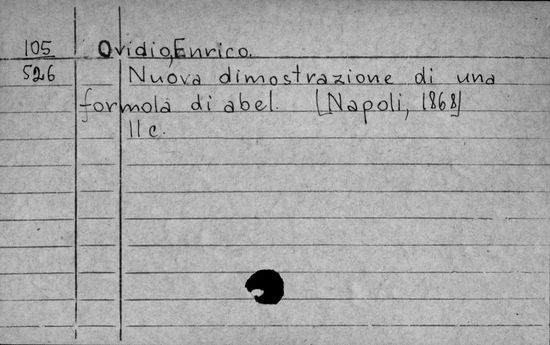 105 Ovidio, Enrico.
526 Nuova dimostrazione di una
formola di abel. [Napoli, 1868]
11 c.